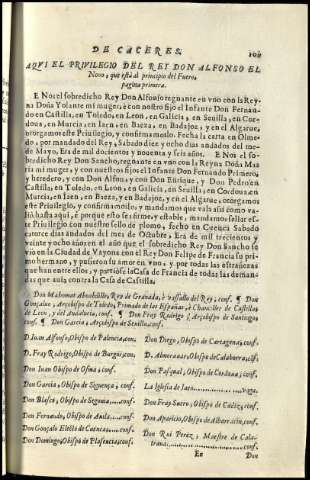 DE CACERES.
AQVI EL PRIVILEGIO DEL REY DON ALFONSO EL
Nono, que está al principio del Fuero,
pagina primera.
E Nos el sobredicho Rey Don Alfonso regnante en vno con la Rey-
na Doña Yolante mi muger, è con nuestro fijo el Infante Don Fernan-
do en Castilla, en Toledo, en Leon, en Galicia, en Seuilla, en Cor-
doua, en Murcia, en Iaen, en Baeza, en Badajoz, y en el Algarue,
otorgamos este Priuilegio, y confirmamoslo. Fecha la carta en Olme-
do, por mandado del Rey, Sabado diez y ocho dias andados del mes
de Mayo. Era de mil docientos y nouenta y seis años. E Nos el so-
bredicho Rey Don Sancho, regnante en vno con la Reyna Doña Ma-
ria mi muger, y con nuestros fijos el Infante Don Fernando Primero,
y heredero, y con Don Alfonso, y con Don Enrique, y Don Pedro en
Castilla, en Toledo, en Leon, en Galicia, en Seuilla, en Cordoua, en
Murcia, en Iaen, en Baeza, y en Badajoz, y en el Algarue, otorgamos
este Priuilegio, y confirmamoslo, y mandamos que vala assi como va-
liò hasta aqui, è porque esto sea firme, y estable, mandamos sellar es-
te Priuilegio con nuestro sello de plomo, fecho en Cuenca Sabado
catorce dias andados del mes de Octubre. Era de mil trecientos y
veinte y ocho años, en el año que el sobredicho Rey Don Sancho se
viò en la Ciudad de Vayona con el Rey Don Felipe de Francia su pri-
mo hermano, y pusieron su amor en vno, y por todas las estrañezas
que han entre ellos, y partiòse la Casa de Francia de todas las deman-
das que auia contra la Casa de Castilla.
Don Mahomat Aboabdille, Rey de Granada, è vassallo del Rey, conf. ¶ Don
Gonçaluo, Arçobispo de Toledo, Primado de las Españas, è Chanciller de Castilla,
de Leon, y del Andalucia, conf. ¶ Don Fray Rodrigo, Arçobispo de Santiago,
conf. ¶ Don Garcia, Arçobispo de Seuilla, conf.
D. Iuan Alfonso, Obispo de Palencia, con.
D. Fray Rodrigo, Obispo de Burgos, con.
Don Iuan Obispo de Osma, conf.
Don Garcia, Obispo de Siguença, conf.
Don Blasco, Obispo de Segouia, conf.
Don Fernando, Obispo de Auila, conf.
Don Gonçalo Electo de Cuenca, conf.
Don Domingo, Obispo de Plasencia, conf.
Don Diego, Obispo de Cartagena, conf.
D. Almorauet, Obispo de Calahorra, conf.
Don Pasqual, Obispo de Cordoua, conf.
La Iglesia de Iaen, vaga.
Don Fray Suero, Obispo de Cadiz, conf.
Don Aparicio, Obispo de Albarracin, conf.
Don Rui Perez, Maestre de Cala-
traua, conf.
Ee
Don